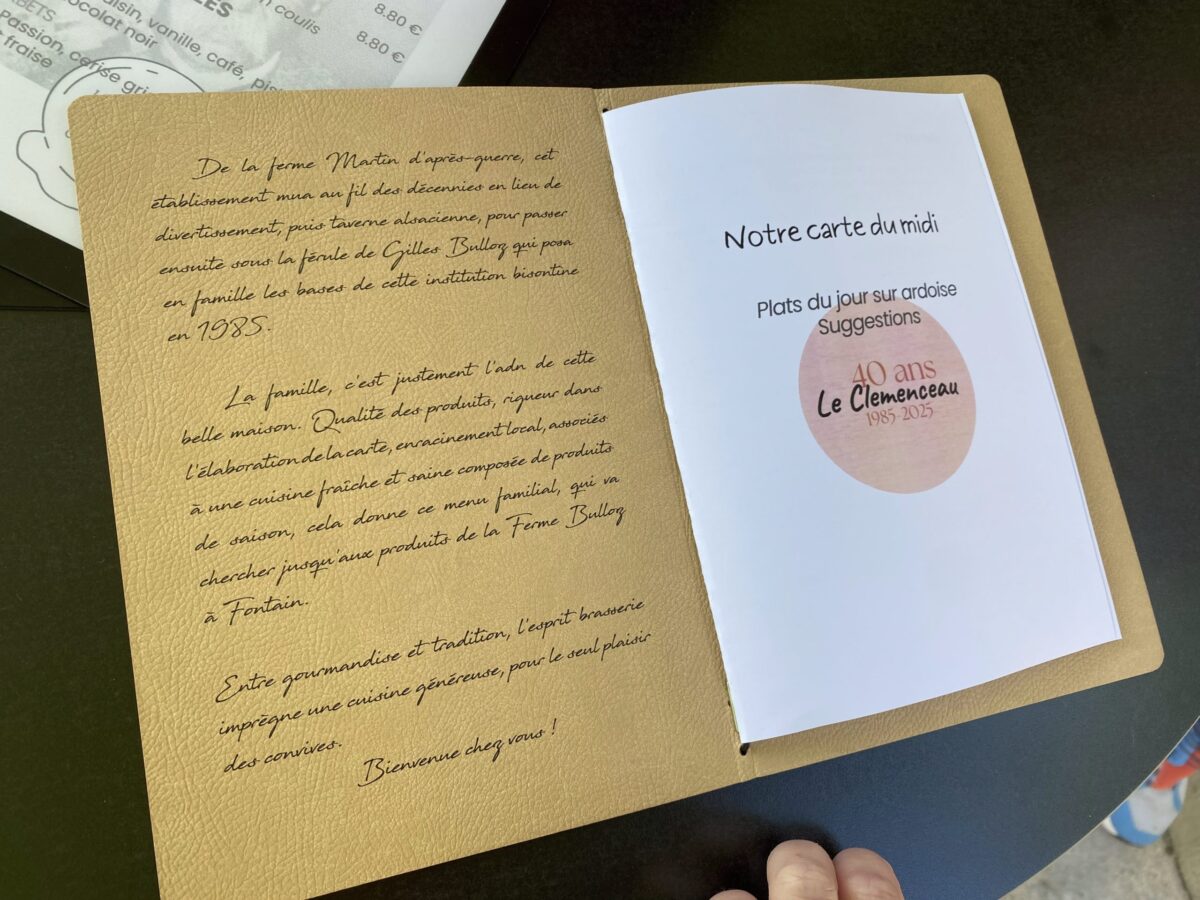 8.80 €
coulis
8.80 €
vanille, café,
chocolat noir
Passion, cerise
fraise
De la ferme Martin d'après-guerre, cet
établissement mua au fil des décennies en lieu de
divertissement, puis taverne alsacienne, pour passer
ensuite sous la férule de Gilles Bulloz qui posa
en famille les bases de cette institution bisontine
en 1985.
La famille, c'est justement l'adn de cette
belle maison. Qualité des produits, rigueur dans
l'élaboration de la carte, enracinement local, associés
à une cuisine fraîche et saine composée de produits
de saison, cela donne ce menu familial, qui va
chercher jusqu'aux produits de la Ferme Bulloz
à Fontain.
Entre gourmandise et tradition, l'esprit brasserie
imprègne une cuisine généreuse, pour le seul plaisir
des convives.
Bienvenue chez vous !
Notre carte du midi
Plats du jour sur ardoise
Suggestions
40 ans
Le Clemenceau
1985-2025